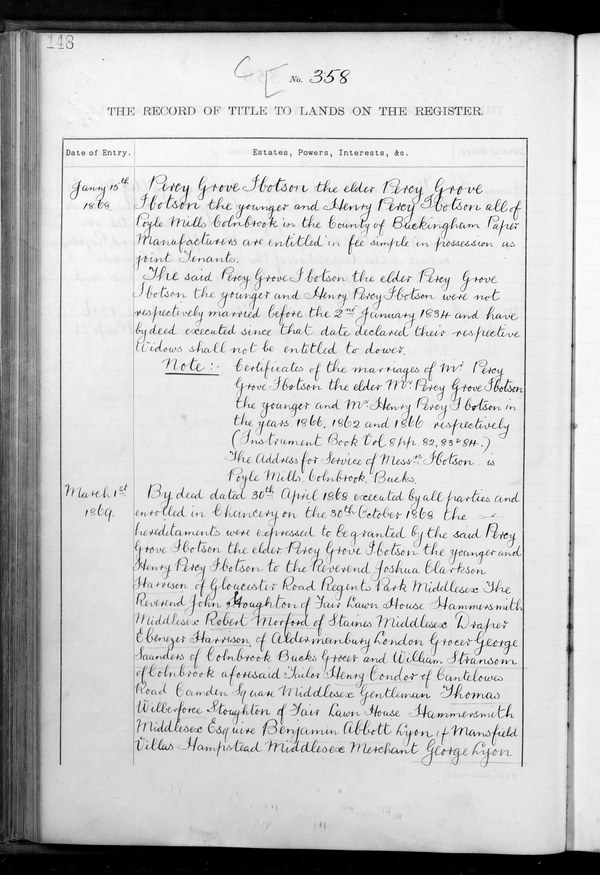 148
No. 358
THE RECORD OF TITLE TO LANDS ON THE REGISTER
Date of Entry.
Estates, Powers, Interests, &c.
Janry 15th 1868.
Percy Grove Ibotson the elder Percy Grove
Ibotson the younger and Henry Percy Ibotson all of
Poyle Mills Colnbrook in the County of Buckingham Paper
Manufacturers are entitled in fee simple in possession as
joint Tenants.
The said Percy Grove Ibotson the elder Percy Grove
Ibotson the younger and Henry Percy Ibotson were not
respectively married before the 2nd January 1834 and have
by deed executed since that date declared their respective
Widows shall not be entitled to dower.
Note:- Certificates of the marriages of Mr. Percy
Grove Ibotson the elder Mr. Percy Grove Ibotson
the younger and Mr. Henry Percy Ibotson in
the years 1866, 1862 and 1866 respectively
(Instrument Book Vol 8 pp 82, 83 & 84.)
The Address for Service of Messrs Ibotson is
Poyle Mills Colnbrook, Bucks.
March 1st 1869.
By deed dated 30th April 1868 executed by all parties and
enrolled in Chancery on the 30th October 1868 the
hereditaments were expressed to be granted by the said Percy
Grove Ibotson the elder Percy Grove Ibotson the younger and
Henry Percy Ibotson to the Reverend Joshua Clarkson
Harrison of Gloucester Road Regents Park Middlesex The
Reverend John Stoughton of Fair Lawn House Hammersmith
Middlesex Robert Morford of Staines Middlesex Draper
Ebenezer Harrison of Aldermanbury London Grocer George
Saunders of Colnbrook Bucks Grocer and William Stransom
of Colnbrook aforesaid Tailor Henry Condor of Cantelowes
Road Camden Square Middlesex Gentleman Thomas
Wilberforce Stoughton of Fair Lawn House Hammersmith
Middlesex Esquire Benjamin Abbott Lyon of Mansfield
Villas Hampstead Middlesex Merchant George Lyon